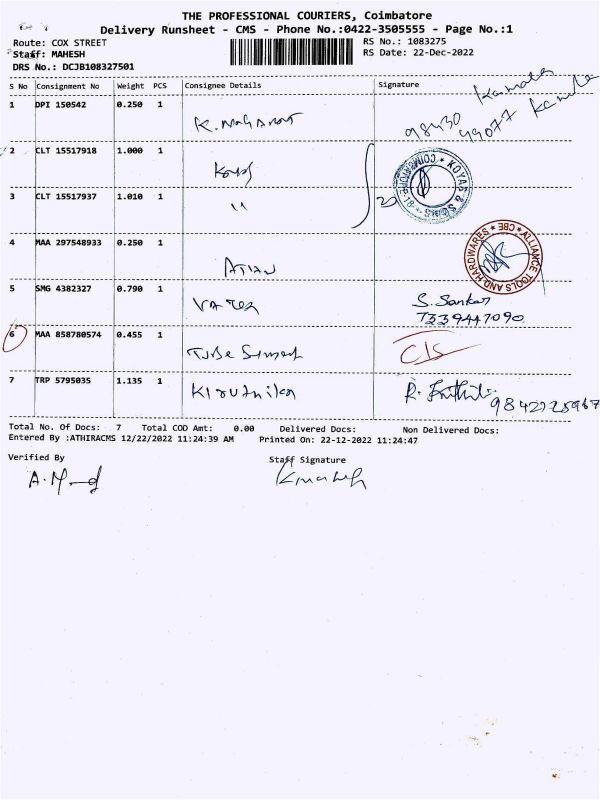 THE PROFESSIONAL COURIERS, Coimbatore
Delivery Runsheet - CMS - Phone No.:0422-3505555 - Page No.:1
Route: COX STREET
RS No.: 1083275
Staff: MAHESH
RS Date: 22-Dec-2022
DRS No.: DCJB108327501
S No Consignment No Weight PCS Consignee Details Signature
1 DPI 150542 0.250 1 98430 99077
2 CLT 15517918 1.000 1 KOYAS & SONS
3 CLT 15517937 1.010 1 "
4 MAA 297548933 0.250 1 ALLIANCE TOOLS AND HARDWARES * CBE *
5 SMG 4382327 0.790 1 S. Sankar
7339447090
6 MAA 858780574 0.455 1
7 TRP 5795035 1.135 1 Kiruthika R.
Total No. Of Docs: 7 Total COD Amt: 0.00 Delivered Docs: Non Delivered Docs:
Entered By :ATHIRACMS 12/22/2022 11:24:39 AM Printed On: 22-12-2022 11:24:47
Verified By Staff Signature